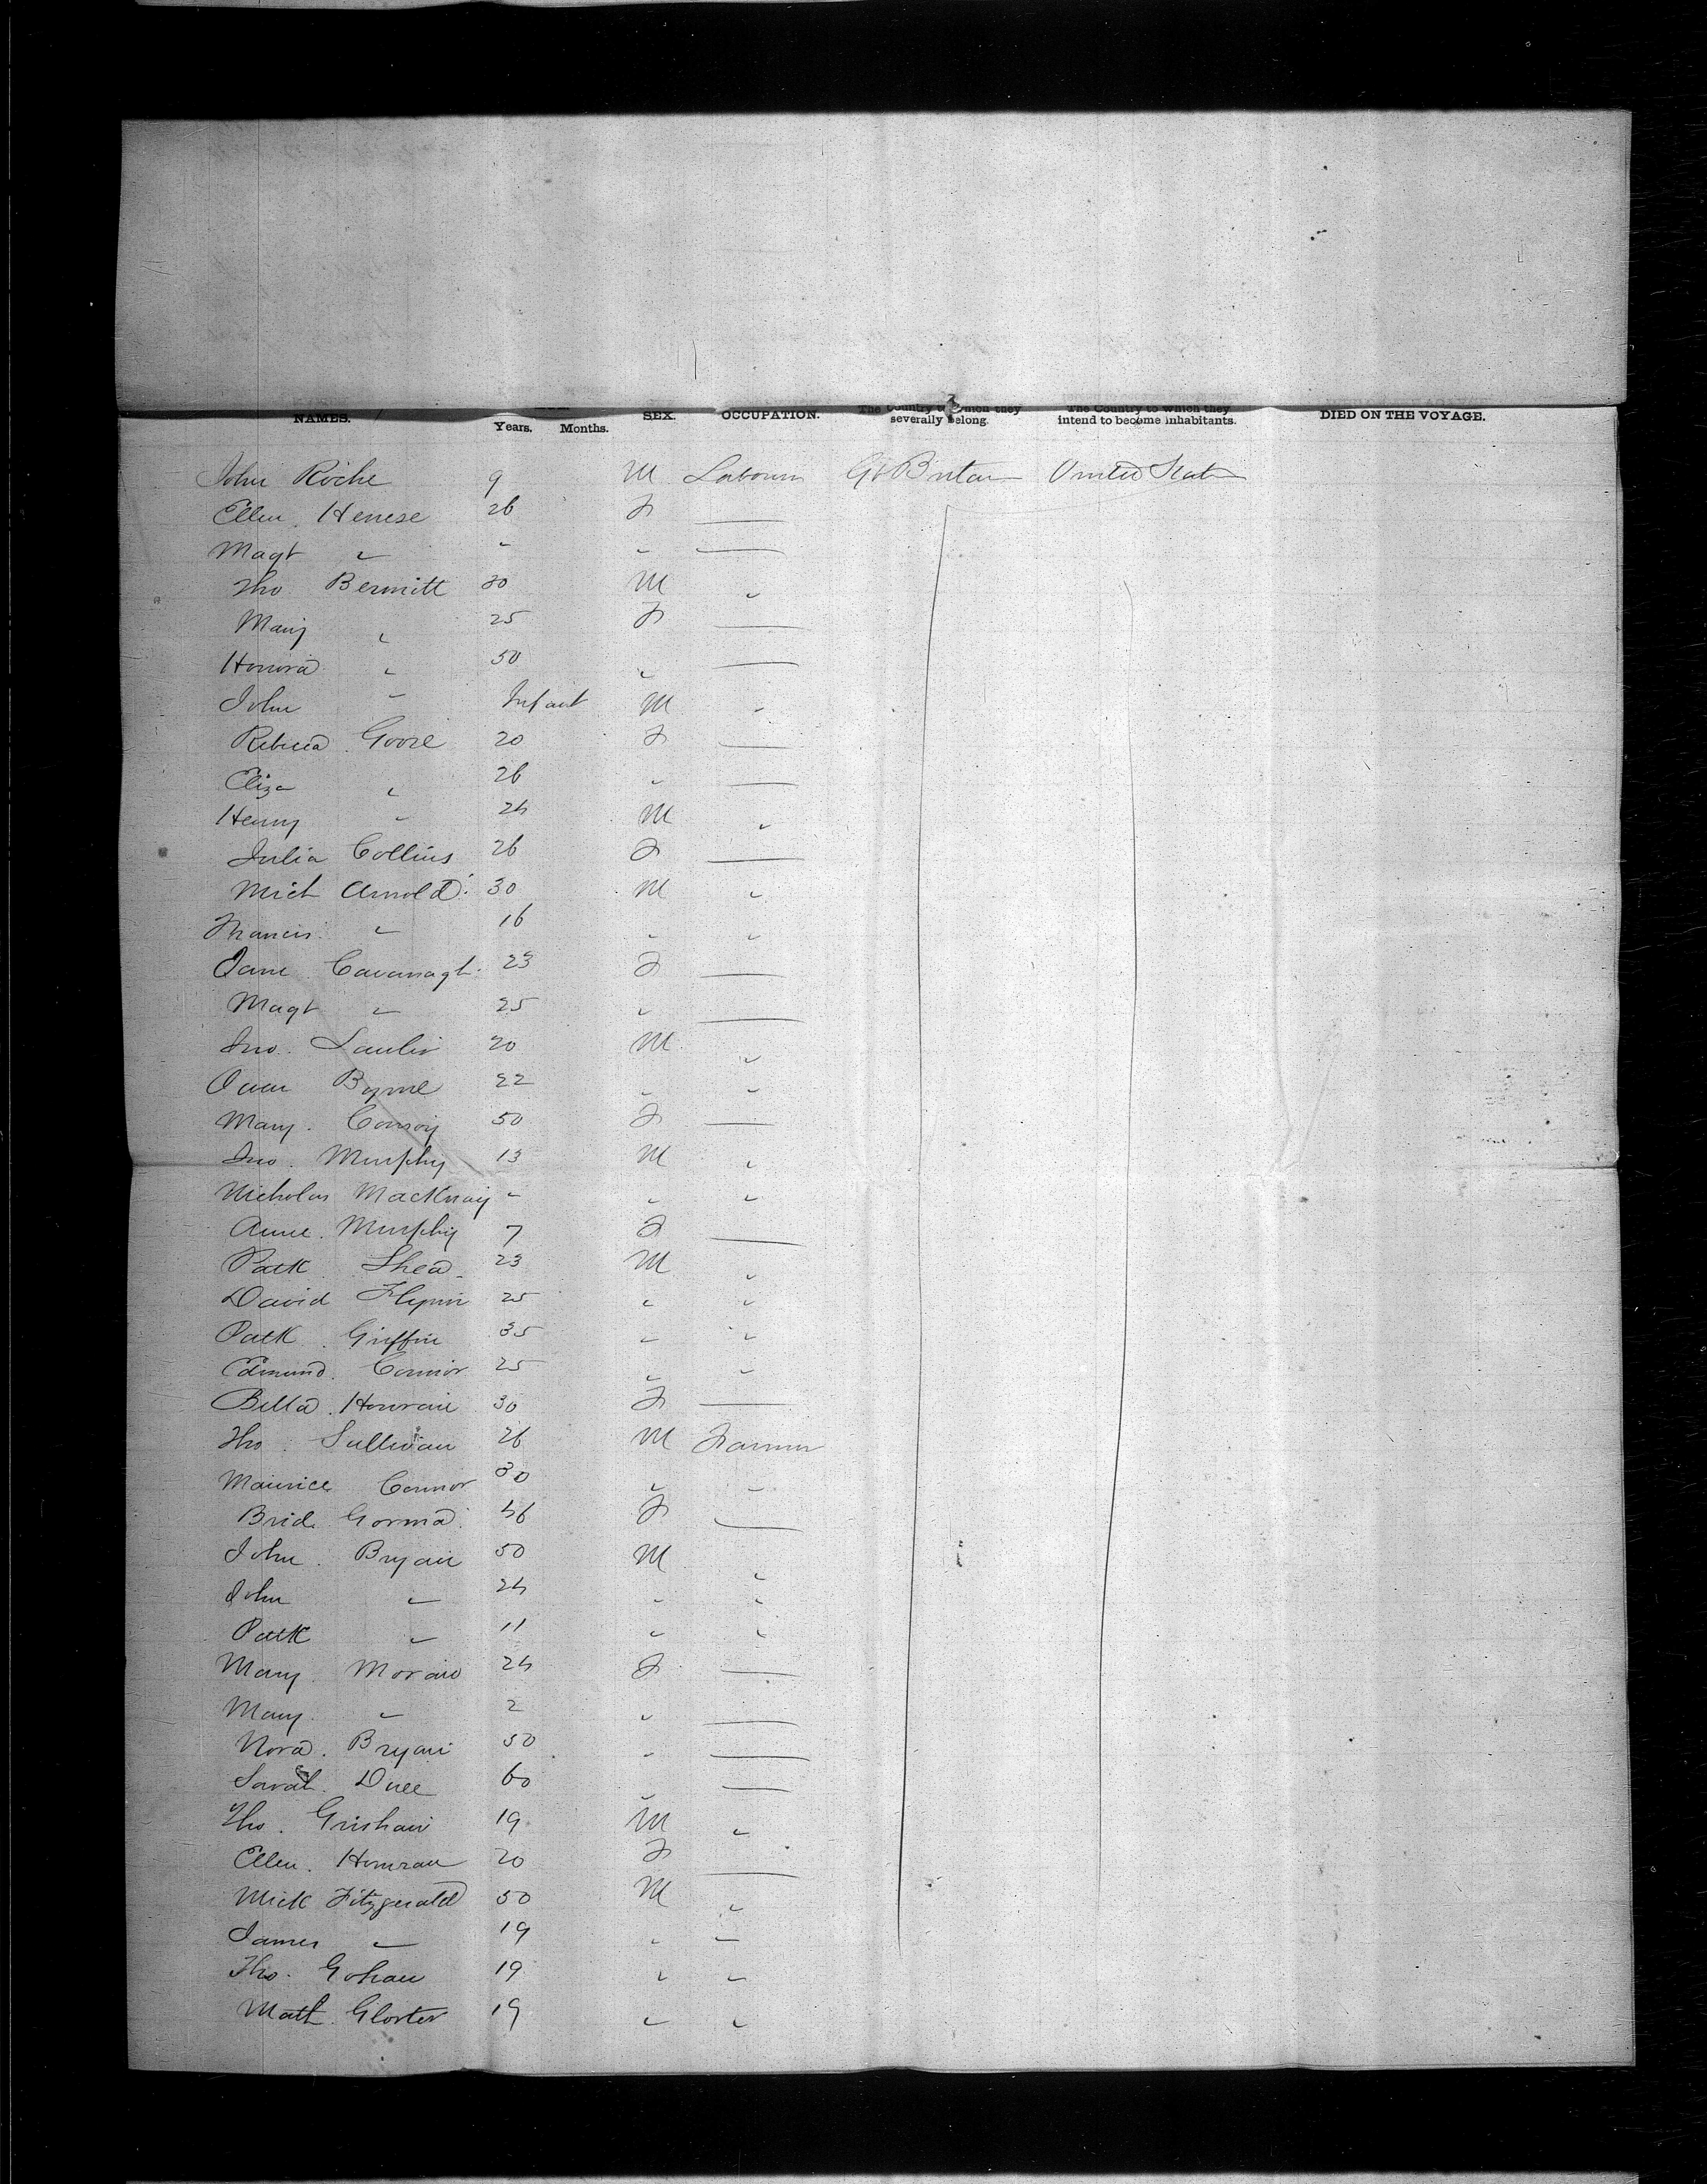 NAMES. Years. Months. SEX. OCCUPATION. The Country to which they severally belong. The Country to which they intend to become inhabitants. DIED ON THE VOYAGE.
John Roche 9 M Labourer Gt Britain United States
Ellen Henese 26 F —
Magt " " " —
Tho Bermitt 30 M "
Mary " 25 F —
Honora " 50 " —
John " Infant M "
Rebecca Goore 20 F —
Eliza " 26 " —
Henry " 24 M "
Julia Collins 26 F —
Mich Arnold 30 M "
Francis " 16 " "
Jane Cavanagh 23 F —
Magt " 25 " —
Jno. Lawlir 20 M "
Owen Byrne 22 " "
Mary Conroy 50 F —
Jno. Murphy 13 M "
Nicholas " " "
Anne Murphy 7 F —
Patk Shea 23 M "
David Flynn 25 " "
Patk Griffin 35 " "
Edmund Connor 25 " "
Bella Honran 30 F —
Tho. Sullivan 26 M Farmer
Maurice Connor 30 " "
Brid. Gorma 46 F —
John Bryan 50 M "
John " 24 " "
Patk " 11 " "
Mary Moran 24 F —
Mary " 2 " —
Nora Bryan 50 " —
Sarah 60 " —
Tho. Grishan 19 M "
Ellen Honran 20 F —
Mick Fitzgerald 50 M "
James " 19 " "
Tho. Gohan 19 " "
Math Gloster 19 " "